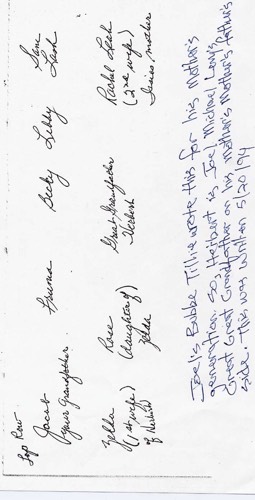 Top Row
Jacob Fruma Becky Libby
your grandfather Leah
Zelda Rose Great-Grandfather Rachel Leah
(1st wife) (daughter of) Herbert (2nd wife)
of Herbert Zelda mother
Joel's Bubbe Tillie wrote this for his Mother's
generation. So, Herbert is Joel Michael
Great Great Grandfather on his Mother's Mother's father's
side. This was written 5/20/94